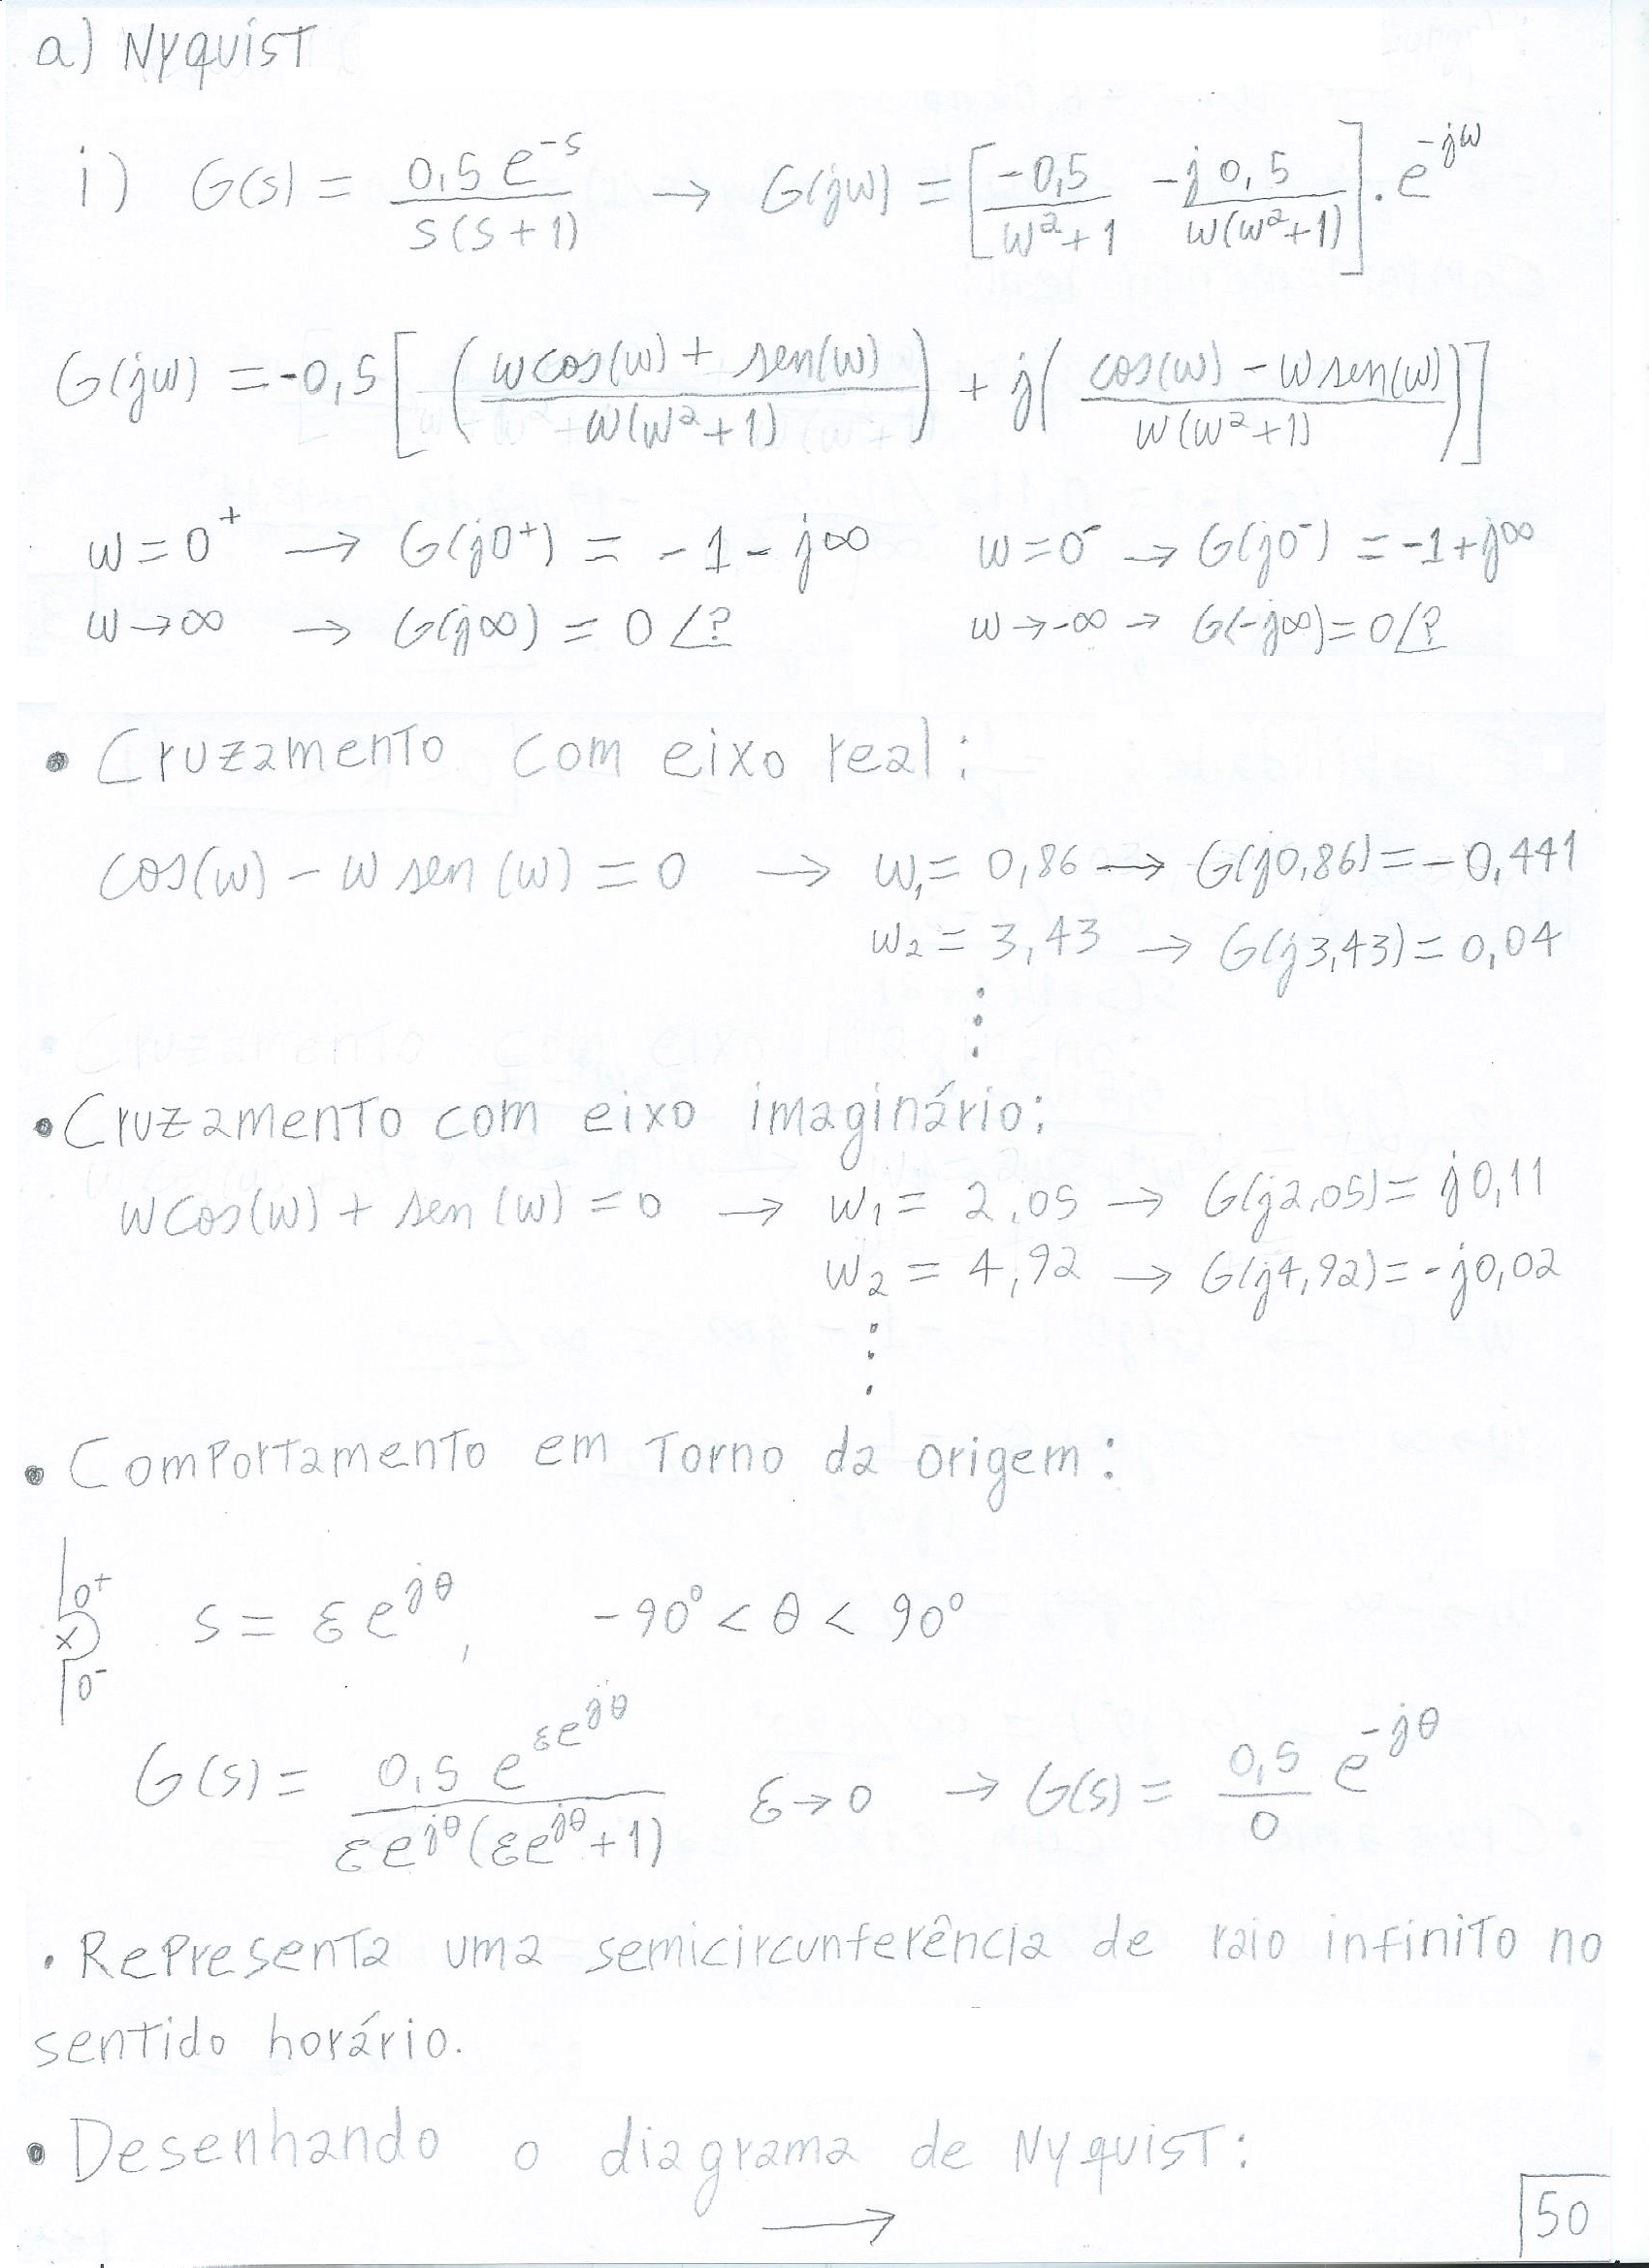 a) NYQUIST
i) G(s) = 0,5 e^-s / s(s+1) → G(jω) = [-0,5 / ω²+1 - j 0,5 / ω(ω²+1)] . e^-jω
G(jω) = -0,5 [ ( ωcos(ω) + sen(ω) / ω(ω²+1) ) + j ( cos(ω) - ω sen(ω) / ω(ω²+1) ) ]
ω = 0⁺ → G(j0⁺) = -1 - j∞ ω = 0⁻ → G(j0⁻) = -1 + j∞
ω → ∞ → G(j∞) = 0 ∠? ω → -∞ → G(-j∞) = 0 ∠?
• Cruzamento com eixo real:
cos(ω) - ω sen(ω) = 0 → ω₁ = 0,86 → G(j0,86) = -0,441
ω₂ = 3,43 → G(j3,43) = 0,04
⋮
• Cruzamento com eixo imaginário:
ωcos(ω) + sen(ω) = 0 → ω₁ = 2,05 → G(j2,05) = j0,11
ω₂ = 4,92 → G(j4,92) = -j0,02
⋮
• Comportamento em torno da origem:
0⁺
x
0⁻
s = εe^jθ, -90° < θ < 90°
G(s) = 0,5 e^εe^jθ / εe^jθ(εe^jθ+1) ε → 0 → G(s) = 0,5 / 0 e^-jθ
• Representa uma semicircunferência de raio infinito no
sentido horário.
• Desenhando o diagrama de Nyquist:
→
50